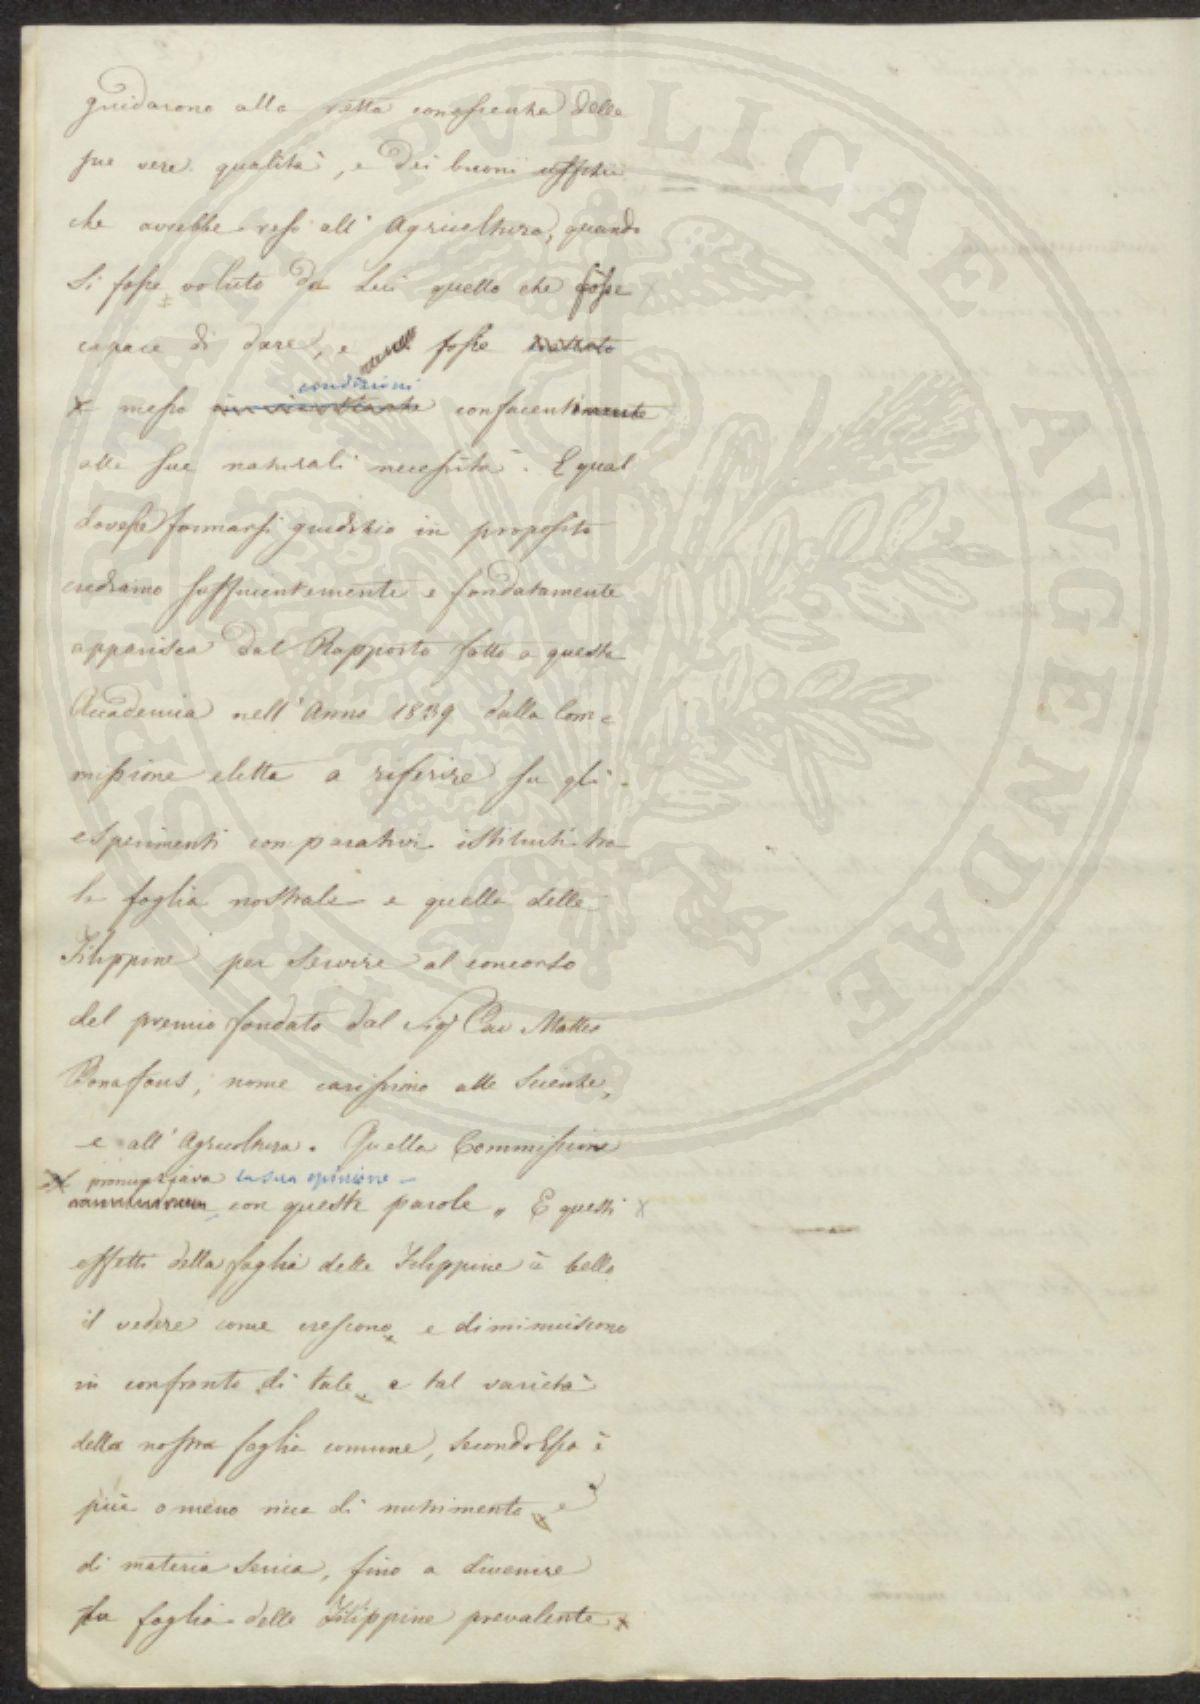 guidarono alla retta conoscenza delle
sue vere qualità, e dei buoni uffizii
che avrebbe reso all' Agricoltura, quando
Si fosse voluto da Lui quello che fosse
capace di dare, e fosse
condizioni
x messo confacenti
alle sue naturali necessità. E qual
dovesse formarsi giudizio in proposito
crediamo sufficientemente e fondatamente
apparisca dal Rapporto fatto a questa
Accademia nell' Anno 1839 dalla Com=
missione eletta a riferire su gli
esperimenti comparativi istituiti tra
la foglia nostrale e quella delle
Filippine per servire al concorso
del premio fondato dal Sigr Cav Matteo
Bonafous, nome carissimo alle Scienze,
e all' Agricoltura. Quella Commissione
x pronunziava la sua opinione
con queste parole „ E questi x
effetti della foglia delle Filippine è bello
il vedere come crescono, e diminuiscono
in confronto di tale, e tal varietà
della nostra foglia comune, secondo Essa è
più o meno ricca di nutrimento, e
di materia serica, fino a divenire
la foglia delle Filippine prevalente x
PUBLICAE AUGENDAE PROSPERITATI